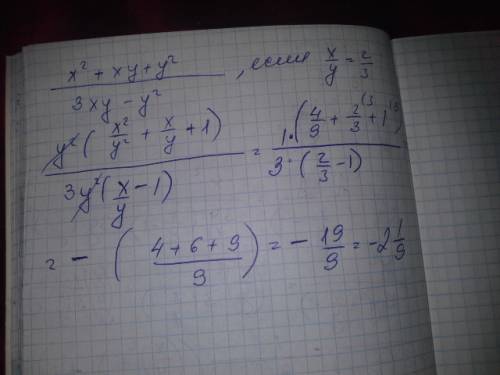 x² + xy + y² / 3xy − y² , если x/y = 2/3
y² ( x²/y² + x/y + 1 ) / 3y² ( x/y − 1 ) = 1 · ( 4/9 + 2/3 (3 + 1 (9 ) / 3 · ( 2/3 − 1 )
= − ( 4 + 6 + 9 / 9 ) = − 19/9 = −2 1/9